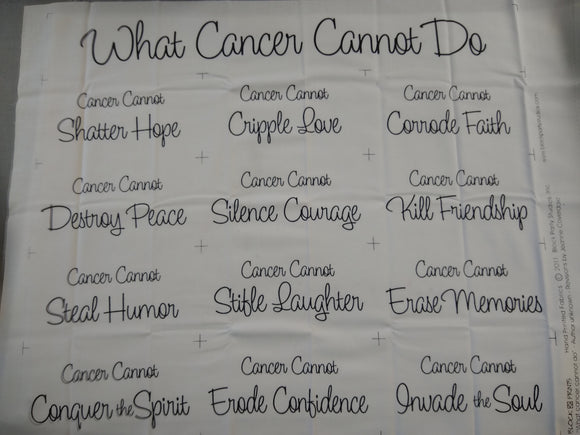 What Cancer Cannot Do
Cancer Cannot
Shatter Hope
Cancer Cannot
Cripple Love
Cancer Cannot
Corrode Faith
Cancer Cannot
Destroy Peace
Cancer Cannot
Silence Courage
Cancer Cannot
Kill Friendship
Cancer Cannot
Steal Humor
Cancer Cannot
Stifle Laughter
Cancer Cannot
Erase Memories
Cancer Cannot
Conquer the Spirit
Cancer Cannot
Erode Confidence
Cancer Cannot
Invade the Soul
Hand Printed Fabrics © 2011 Block Party Studios Inc.